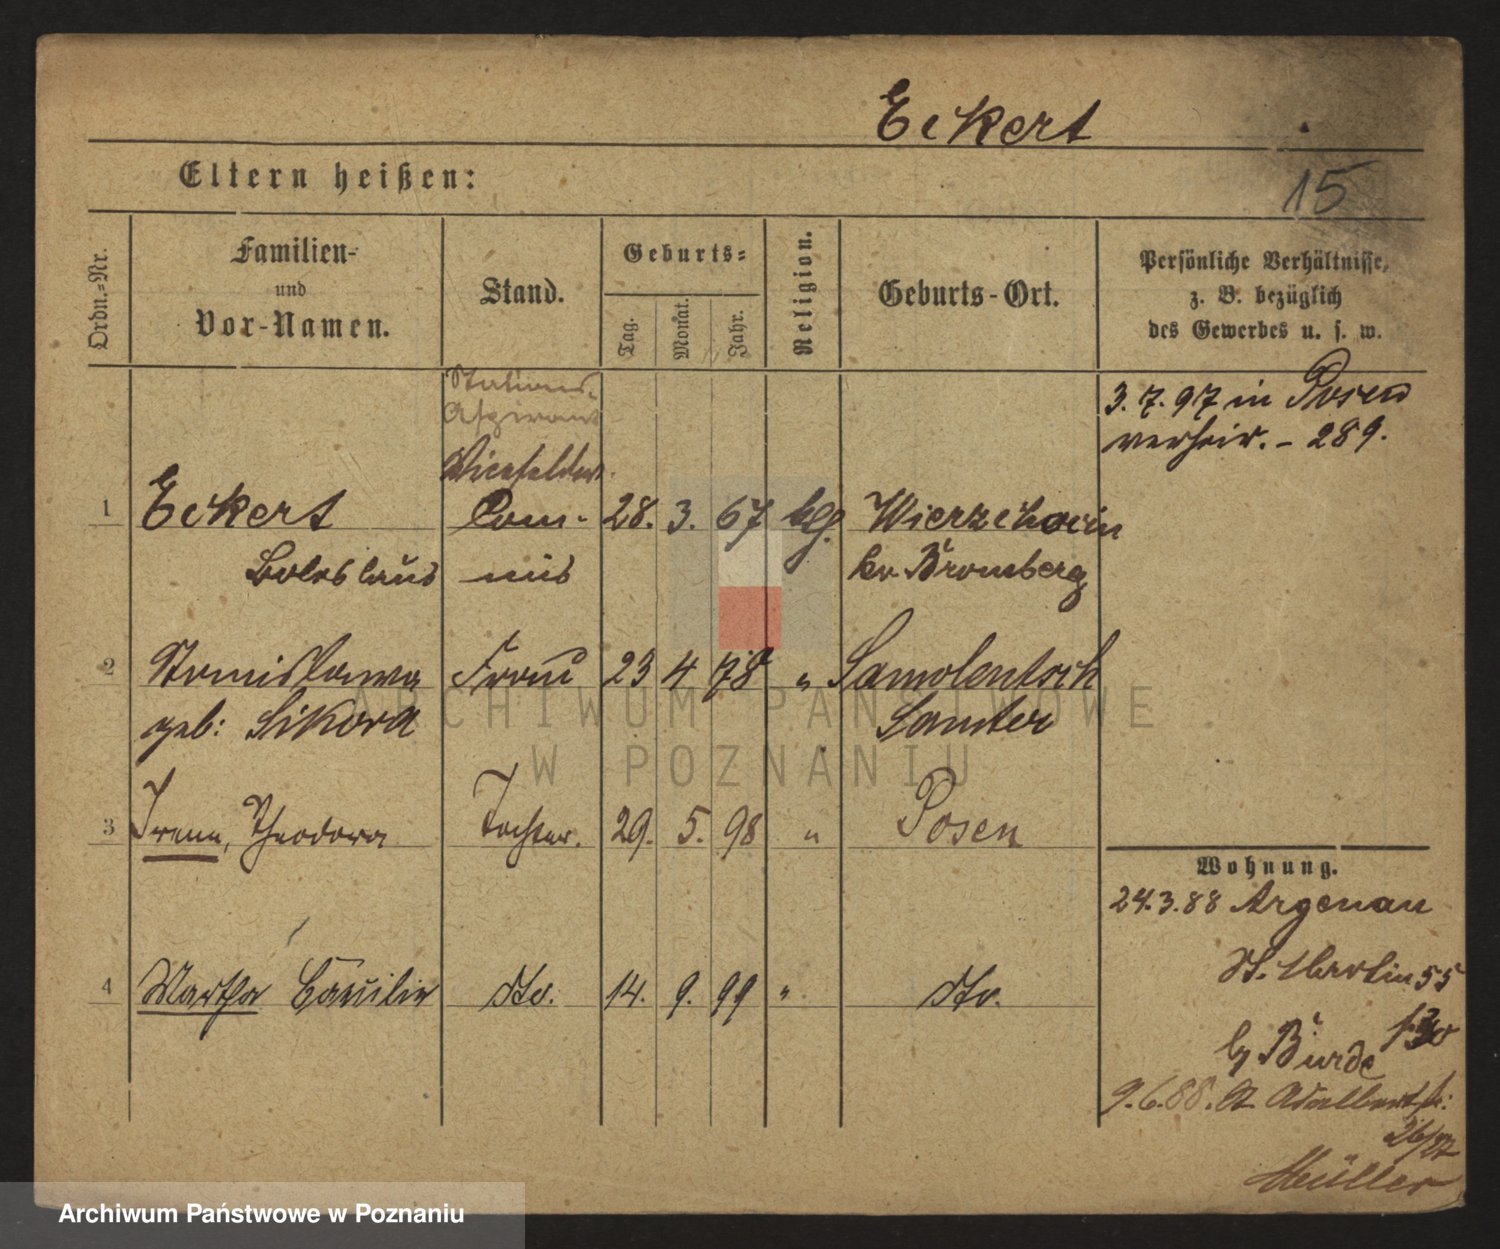 Eckert
Eltern heißen:
15
Ordn.=Nr.
Familien-
und
Vor-Namen.
Stand.
Geburts=
Tag.
Monat.
Jahr.
Religion.
Geburts-Ort.
Persönliche Verhältnisse,
z. B. bezüglich
des Gewerbes u. s. w.
Stations-
Aspirant
3. 7. 97 in Posen
verheir. - 289.
1 Eckert Com- 28. 3. 67 klg. Wierzchocin
Boleslaus mis kr Bromberg
2 Stanislawa Frau 23 4 78 " Samolentsch
geb: Sikora Samter
3 Irene, Theodora Tochter. 29. 5. 98 " Posen
Wohnung.
24.3.88 Argenau
St. Martin 55
4 Martha Cäcilie dto. 14. 9. 99 " dto.
by Bürde
9.6.88. St. Adalbertstr:
26/27
Müller
ARCHIWUM PAŃSTWOWE
W POZNANIU
Archiwum Państwowe w Poznaniu